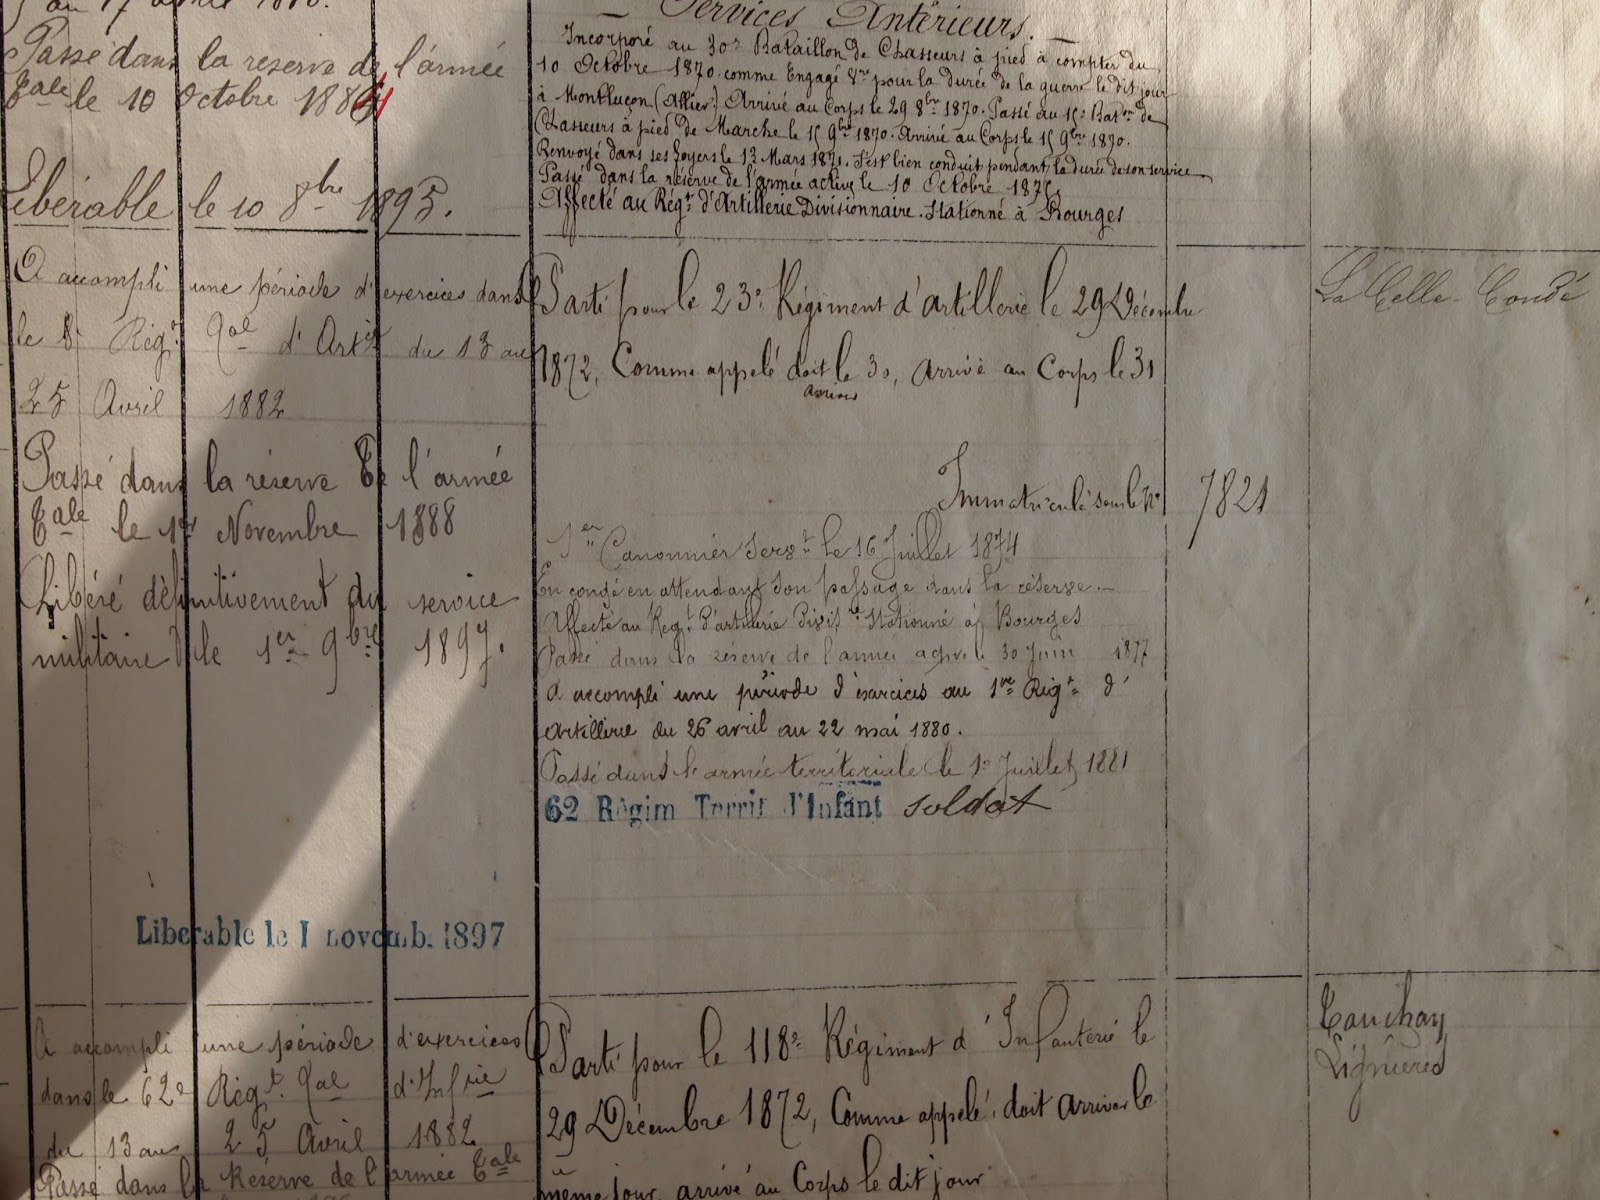 Passé dans la réserve de l'armée
Tale le 10 Octobre 1884
Libérable le 10 8bre 1895.
Services Antérieurs.
Incorporé au 30e Bataillon de Chasseurs à pied à compter du
10 Octobre 1870 comme Engagé Vre pour la durée de la guerre le dit jour
à Montluçon (Allier) Arrivé au Corps le 29 8bre 1870. Passé au Baton de
Chasseurs à pied de Marche le 15 9bre 1870. Arrivé au Corps le 15 9bre 1870.
Renvoyé dans ses foyers le 13 Mars 1871. S'est bien conduit pendant la durée de son service
Passé dans la réserve de l'armée active le 10 Octobre
Affecté au Régt d'Artillerie Divisionnaire. Stationné à Bourges
A accompli une période d'exercices dans
le 8e Régt tal d'Artie du 13 au
25 Avril 1882
Passé dans la réserve de l'armée
Tale le 1er Novembre 1888
Libéré définitivement du service
militaire le 1er 9bre 1897.
Liberable le 1 novemb. 1897
Parti pour le 23e Régiment d'artillerie le 29 Décembre
1872, Comme appelé doit le 30, arrivé au Corps le 31
arriver
Immatriculé sous le No 7821
1er Canonnier Servt le 16 Juillet 1874
En congé en attendant son passage dans la réserve.
Affecté au Régt d'artillerie Divisre Stationné à Bourges
Passé dans la réserve de l'armée active 30 Juin 1877
A accompli une période d'exercices au 1re Régt d'
Artillerie du 26 avril au 22 mai 1880.
Passé dans l'armée territoriale le 1er Juillet 1881
62 Régim Territ d'Infant soldat
La Celle-Condé
A accompli une période d'exercices
dans le 62e Régt tal d'Infrie
du 13 au 25 Avril 1882
Passé dans la Réserve de l'armée Tale
Parti pour le 118e Régiment d'Infanterie le
29 Décembre 1872, Comme appelé, doit arriver le
même jour, arrivé au Corps le dit jour
Touchay
Lignières